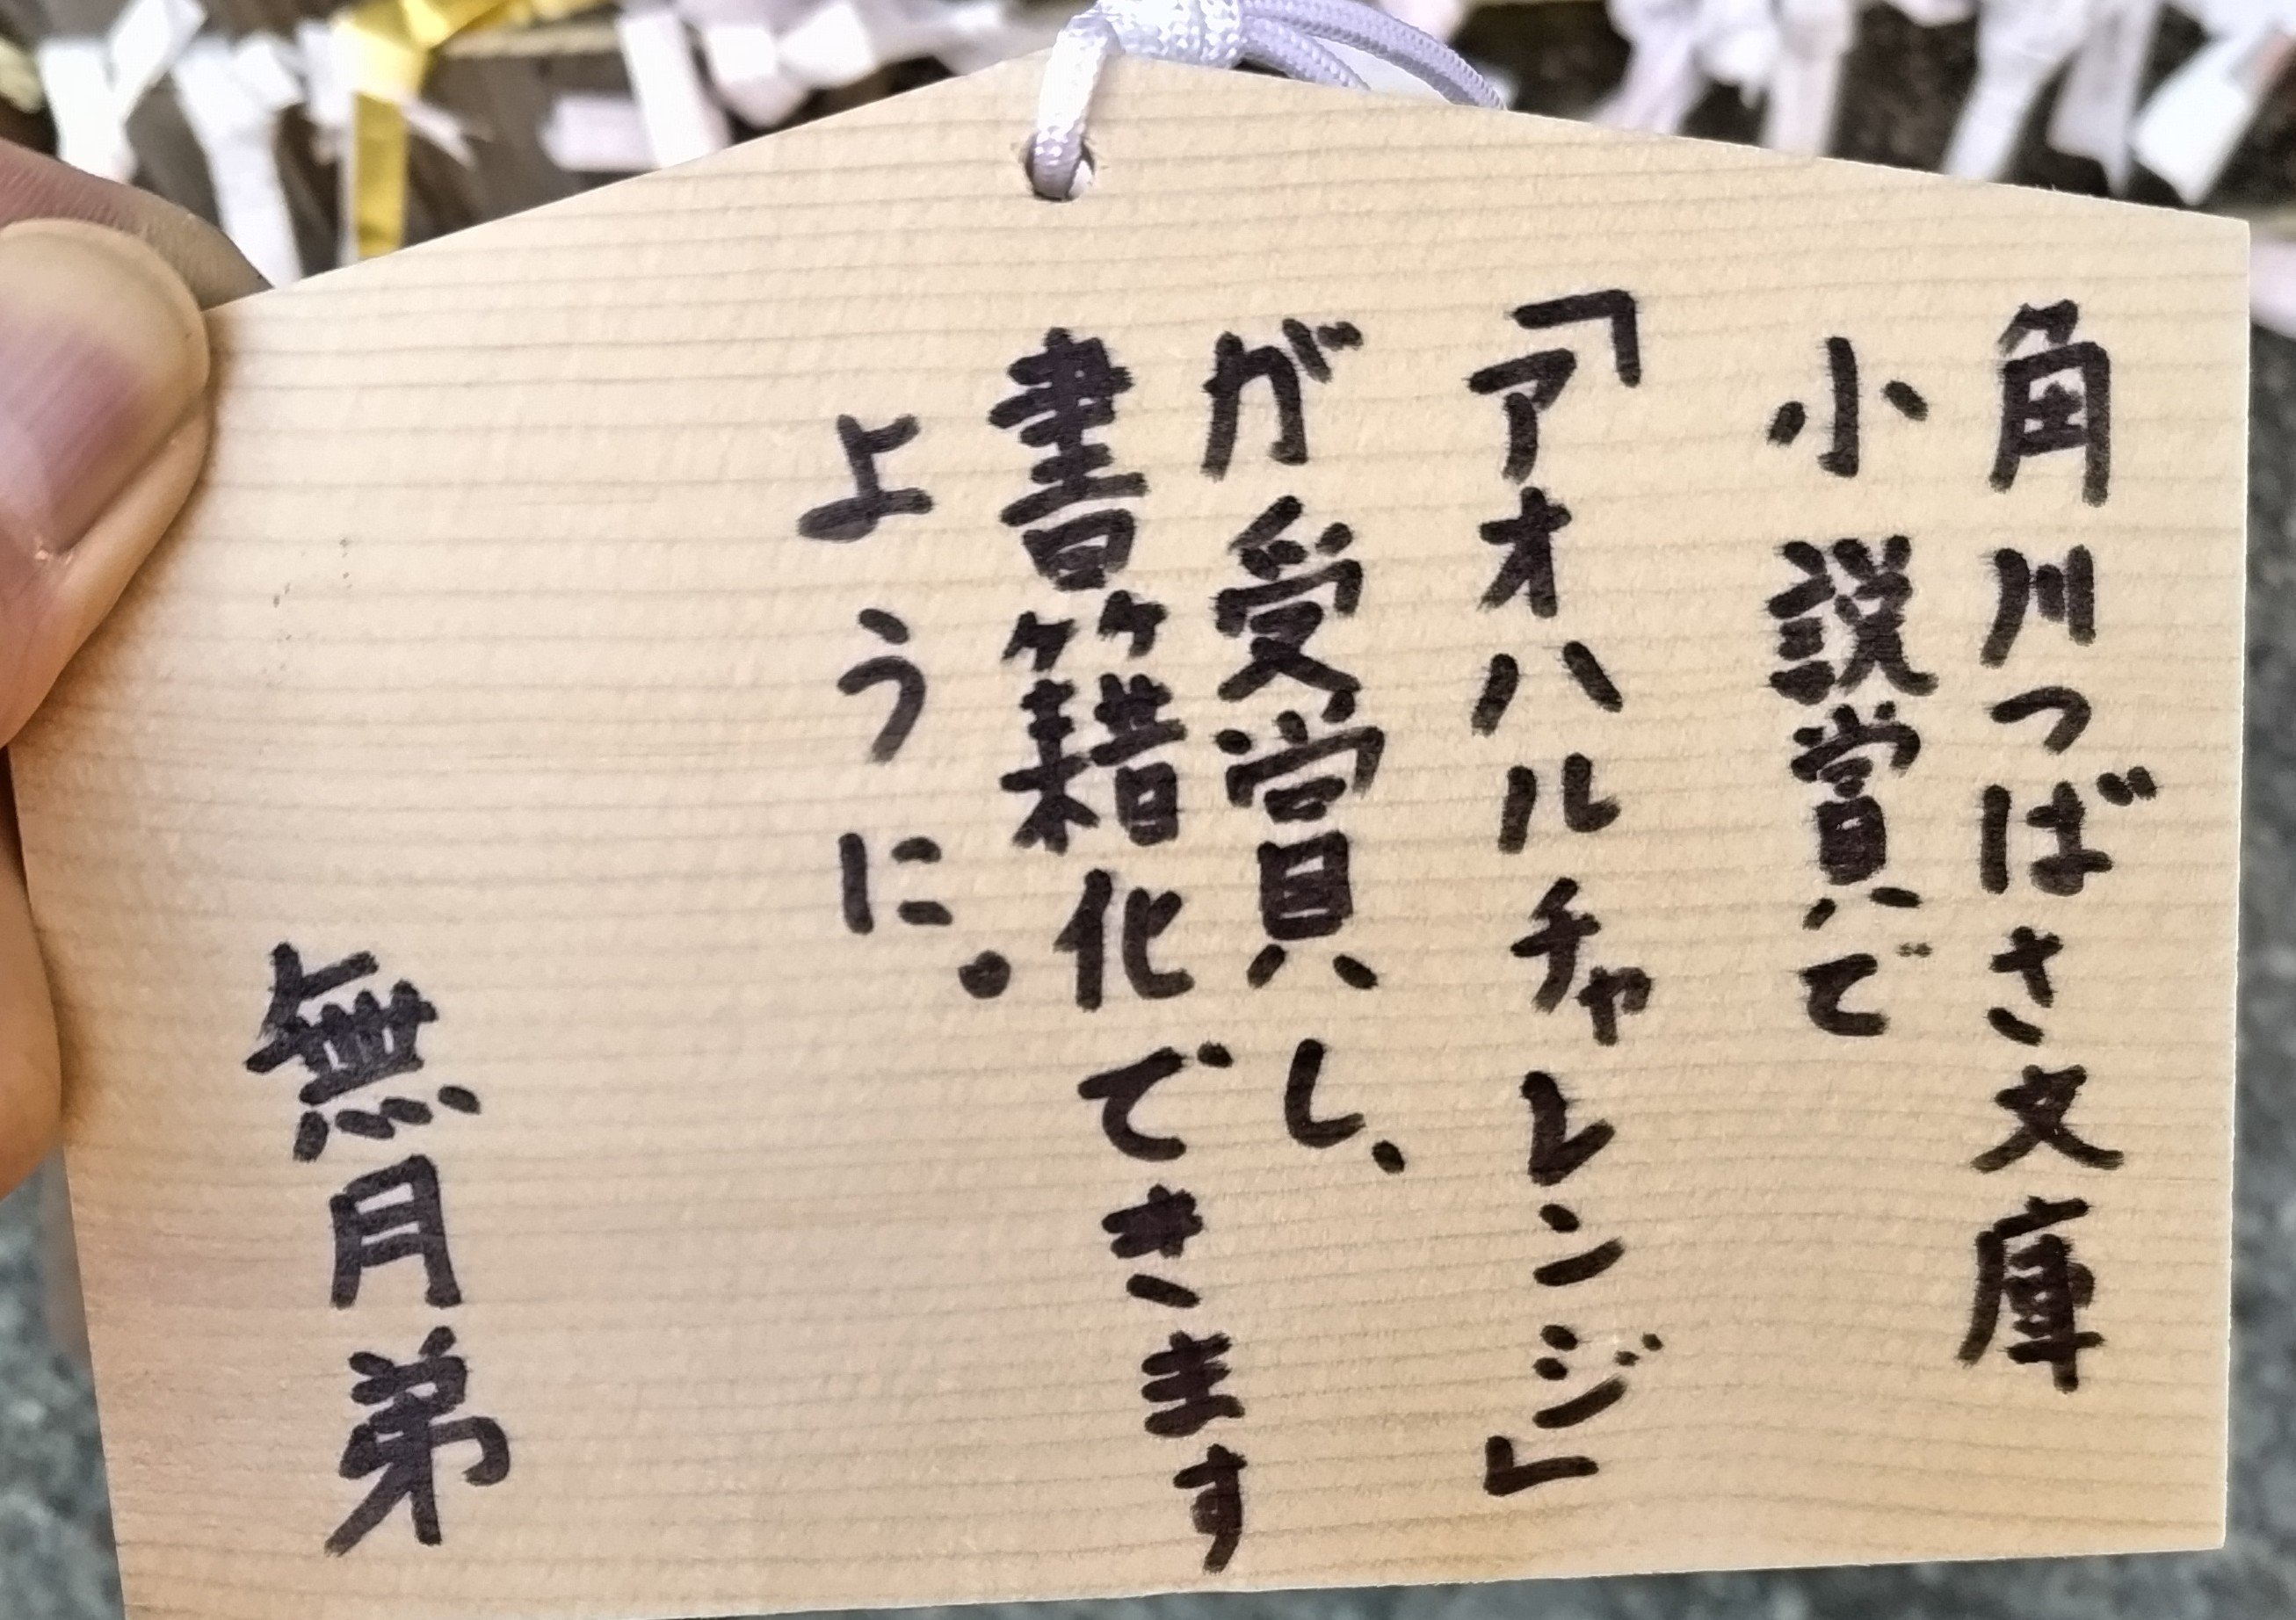 角川つばさ文庫
小説賞で
「アオハルチャレンジ」
が受賞し、
書籍化できます
ように。
無月弟